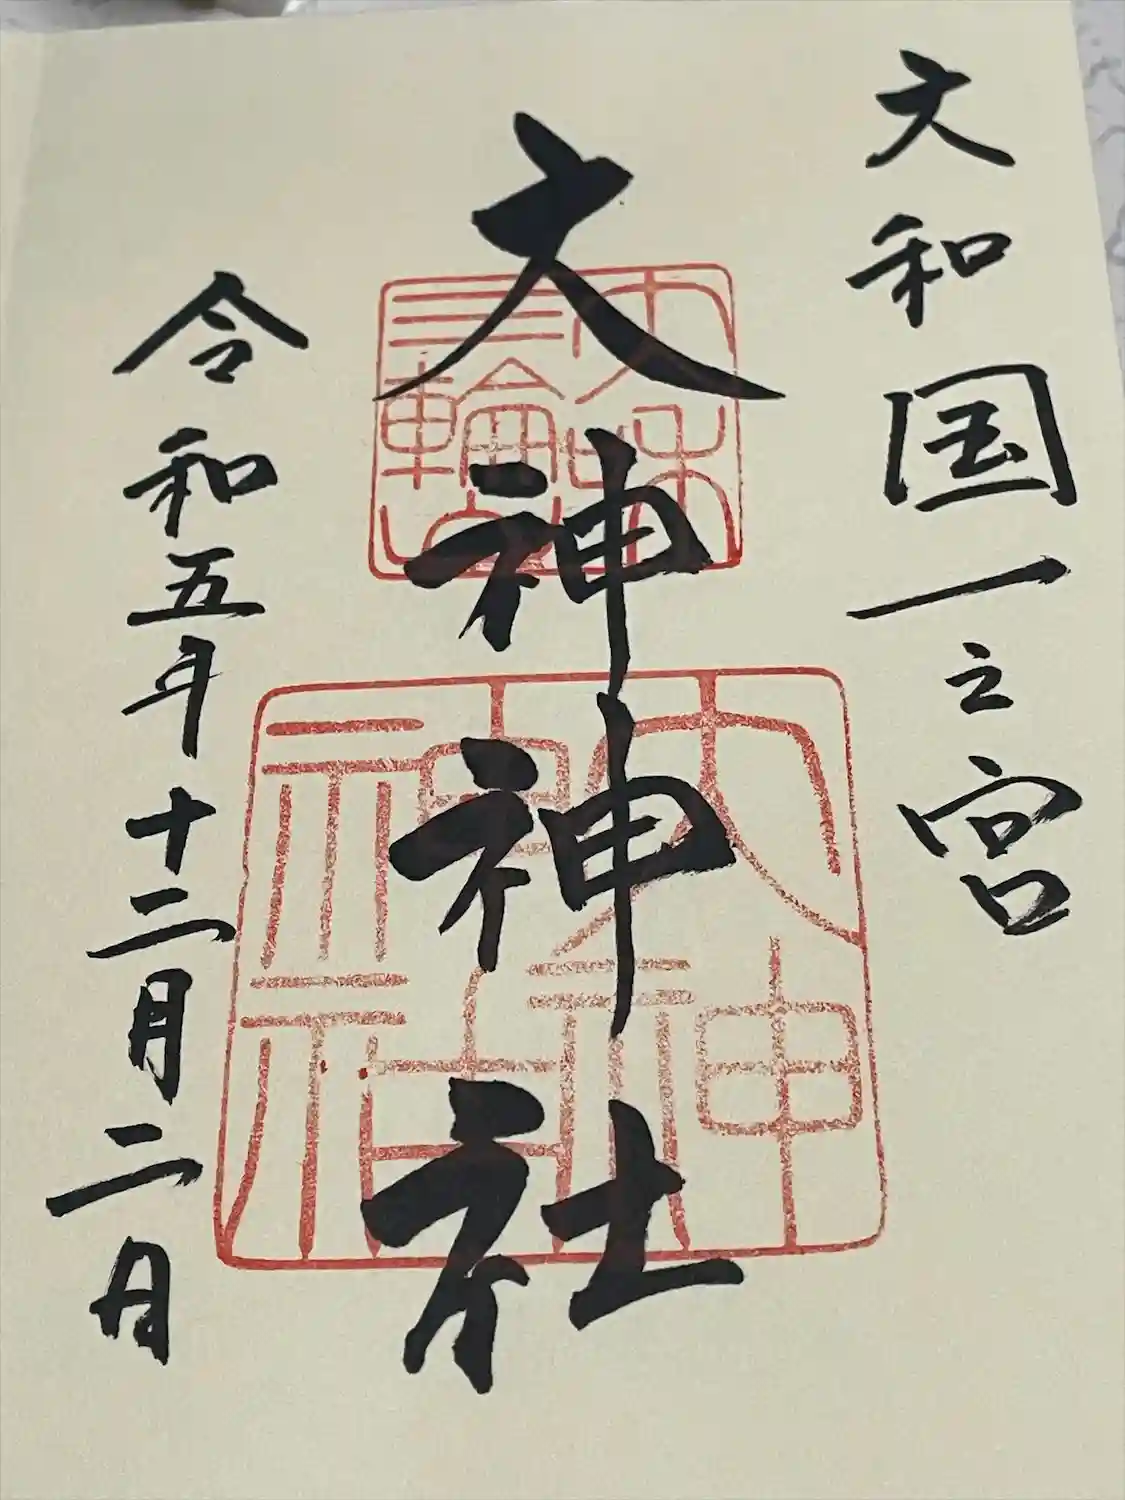 大和国一之宮
大神神社
令和五年十二月二日
大神神社